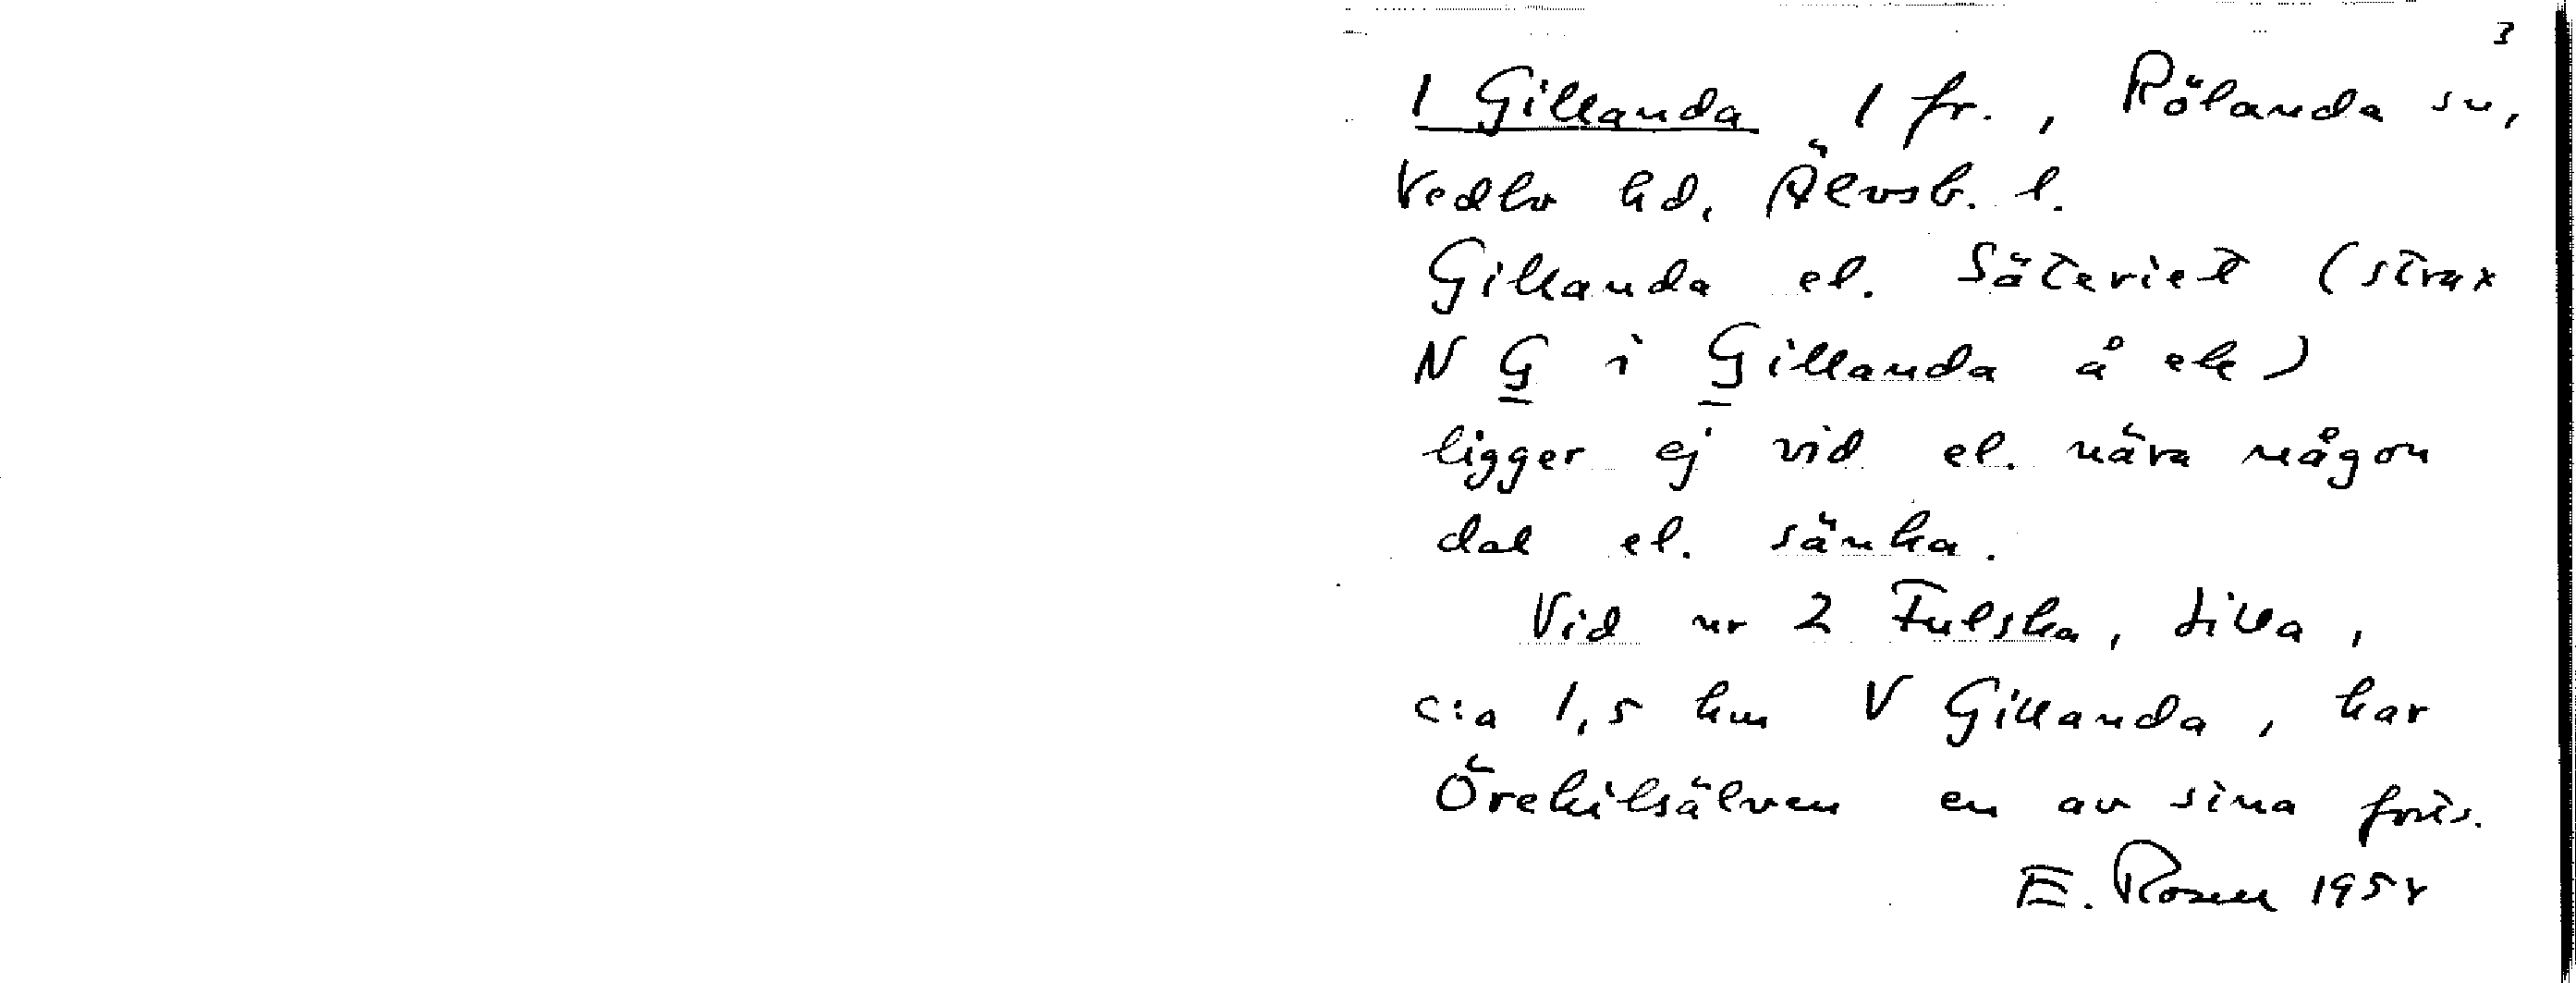 3
1 Gillanda 1 fr., Rölanda sn,
Vedbo hd, Älvsb. l.
Gillanda el. Säteriet (strax
N G i Gillanda å ek)
ligger ej vid el. nära någon
dal el. sänka.
Vid nr 2 Fulska, Lilla,
c:a 1,5 km V Gillanda, har
Örekilsälven en av sina
E. Rosen 1954